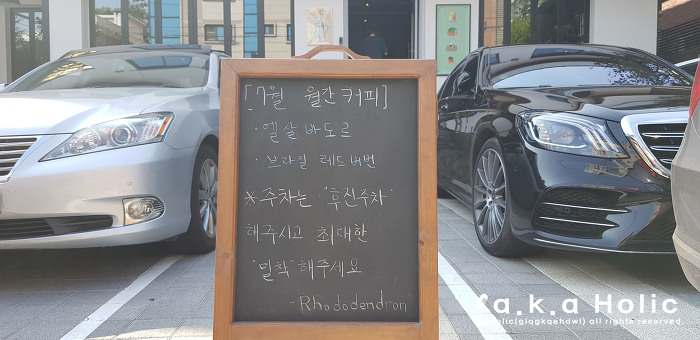 [7월 월간커피]
· 엘살바도르
· 브라질 레드버번
※주차는 "후진주차"
해주시고 최대한
"밀착"해주세요
-Rhododendron
a.k.a Holic
holic(giqgkqehdwl) all rights reserved.